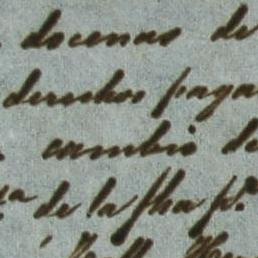 docenas de
derechos paga
cambio de
de la fha p.ª